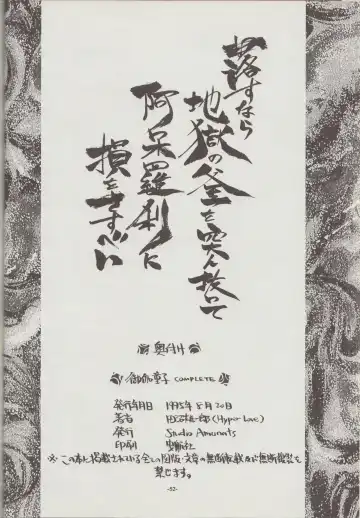 落すなら
地獄の釜を突ん抜いて
阿呆羅刹に
損をさすべい
奥付け
COMPLETE
発行年月日 1995年8月20日
著者 (Hyper Love)
発行 Studio
印刷
※この本に掲載されている全ての図版・文章の無断転載及び無断複製を
禁じます。
-52-